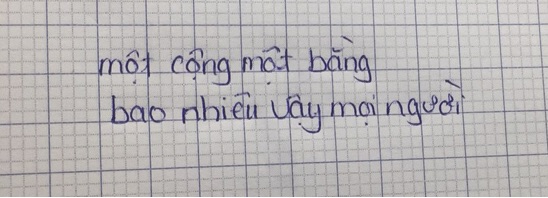 một cộng một bằng
bao nhiêu vậy mọi người